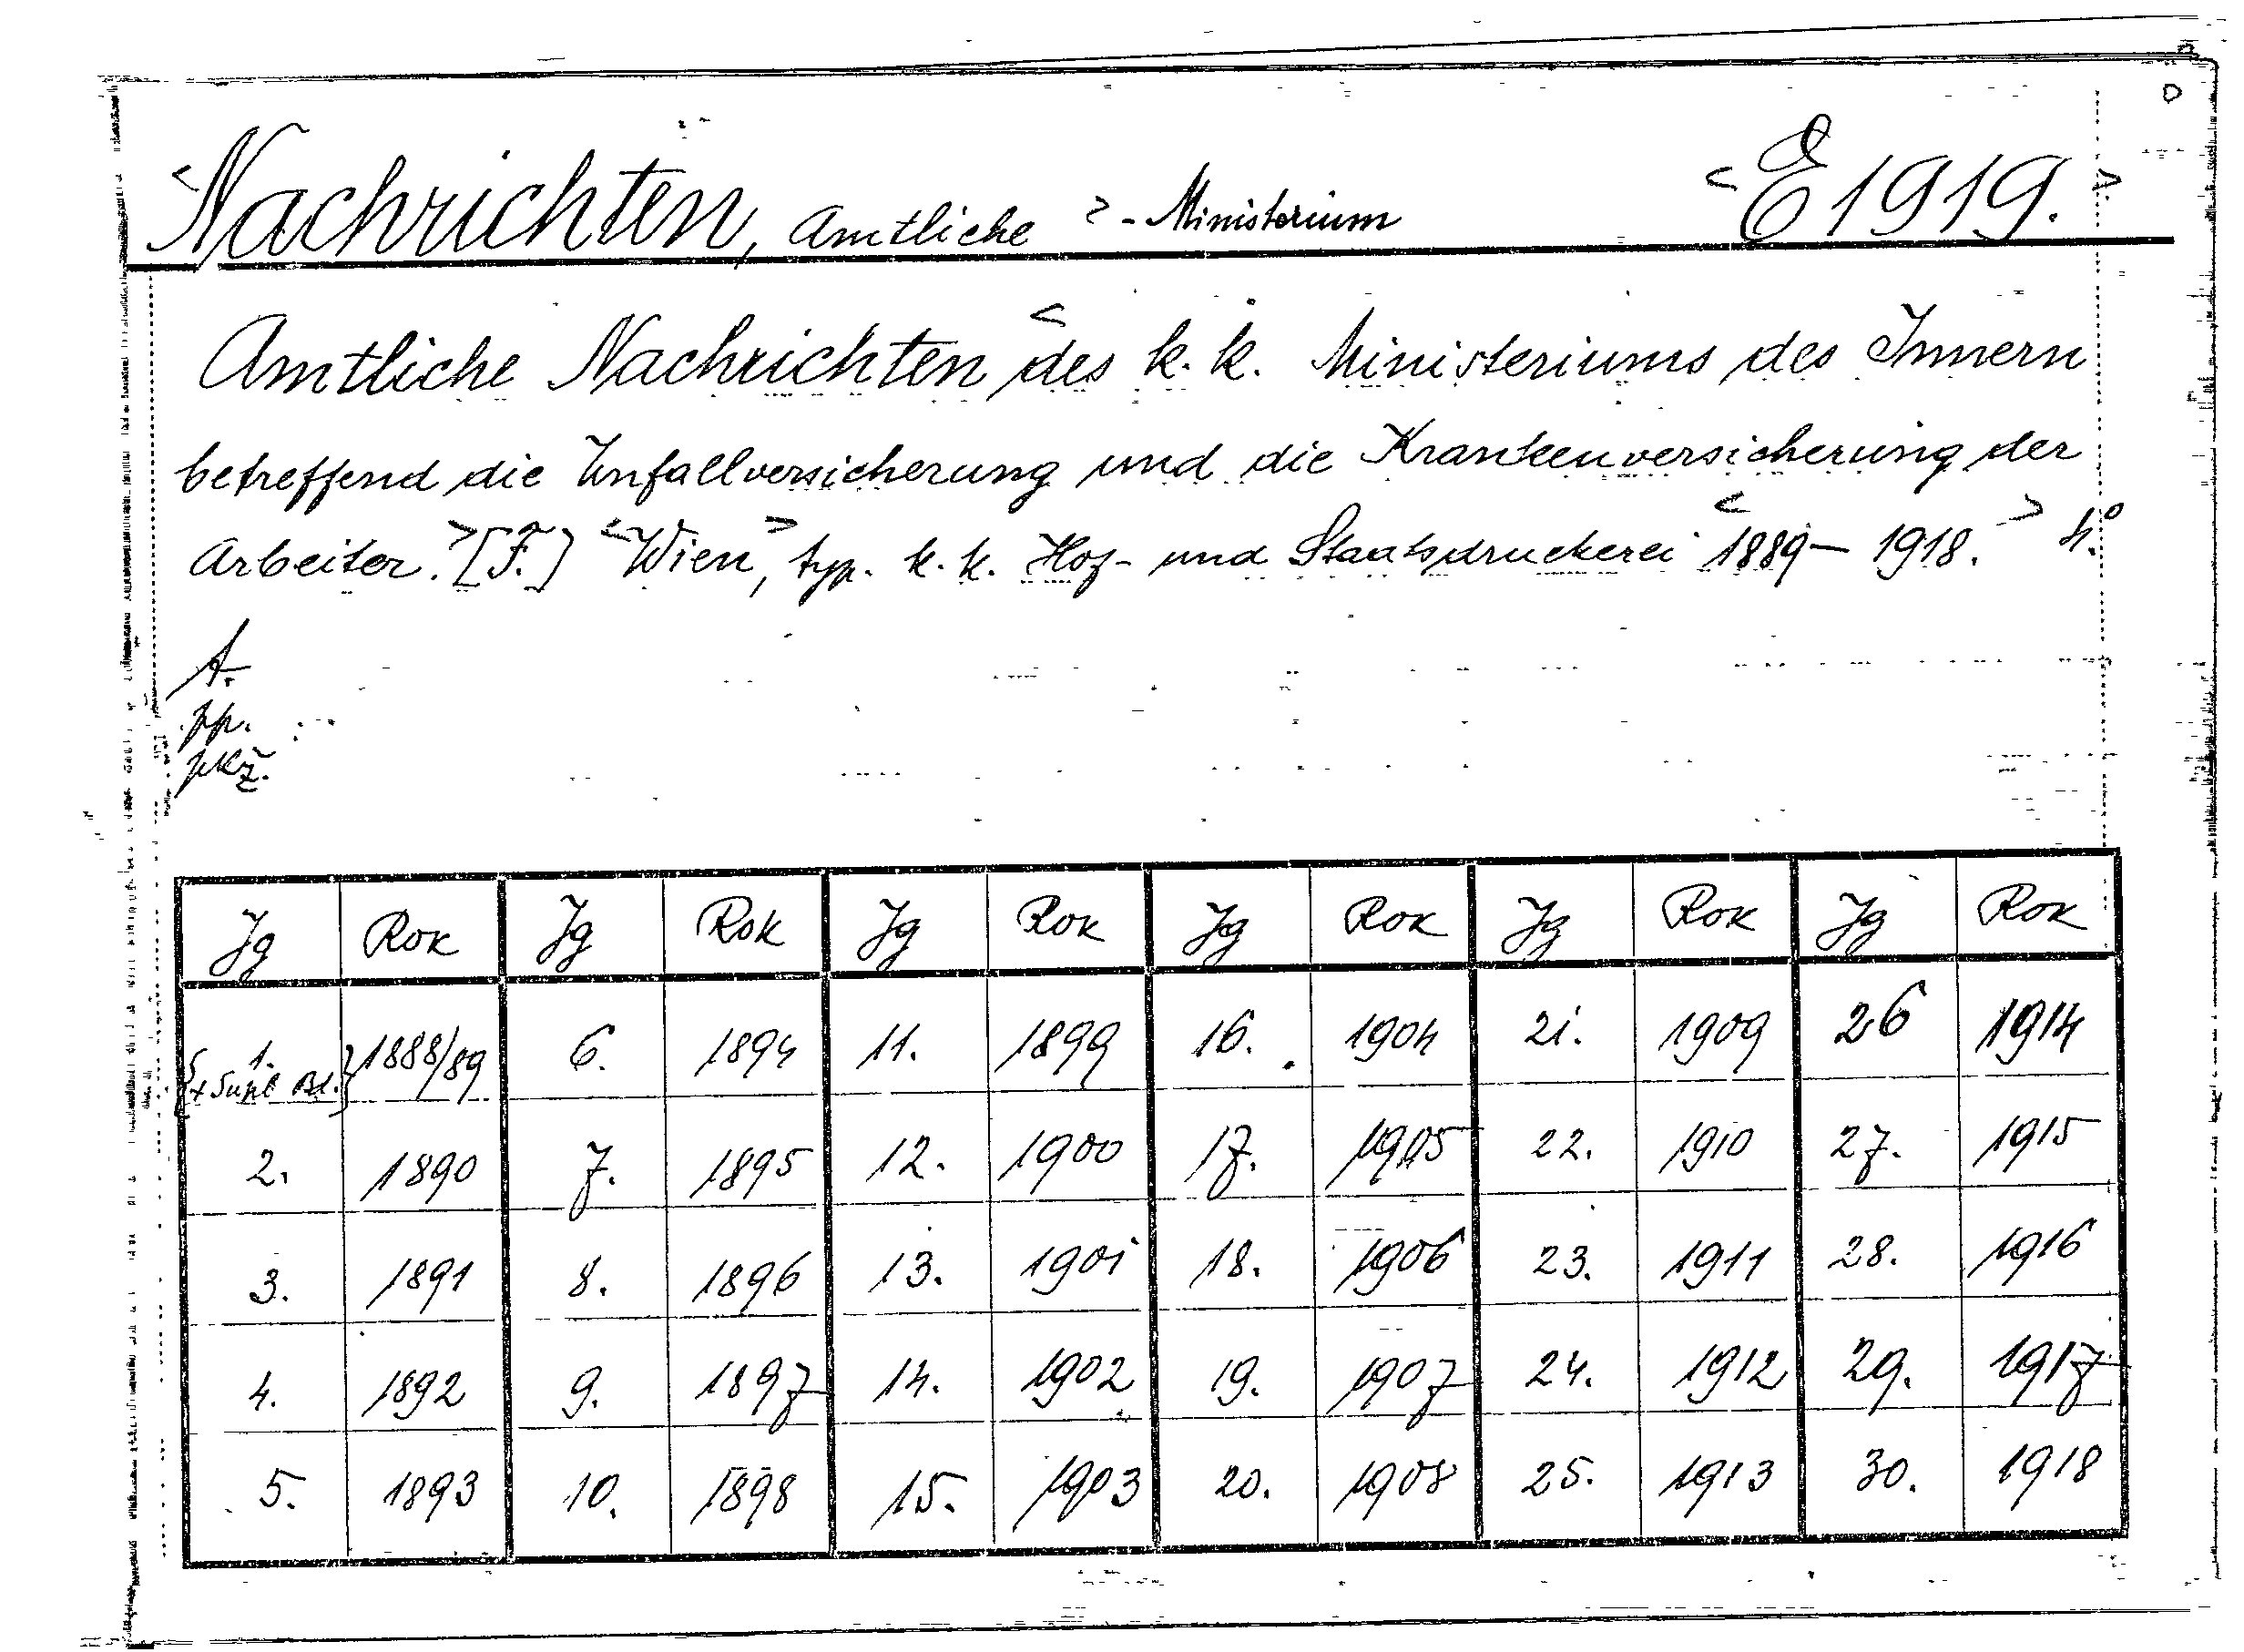 <Nachrichten, Amtliche > - Ministerium <E 1919.>
Amtliche Nachrichten < des k. k. Ministeriums des Innern
betreffend die Unfallversicherung und die Krankenversicherung der
Arbeiter. > [F.] <Wien,> typ. k. k. Hof- und Staatsdruckerei <1889 – 1918.> 4.°
A.
pp.
Jg Rok Jg Rok Jg Rok Jg Rok Jg Rok Jg Rok
1. 1888/89 6. 1894 11. 1899 16. 1904 21. 1909 26 1914
{+ Supl Bd.}
2. 1890 7. 1895 12. 1900 17. 1905 22. 1910 27. 1915
3. 1891 8. 1896 13. 1901 18. 1906 23. 1911 28. 1916
4. 1892 9. 1897 14. 1902 19. 1907 24. 1912 29. 1917
5. 1893 10. 1898 15. 1903 20. 1908 25. 1913 30. 1918